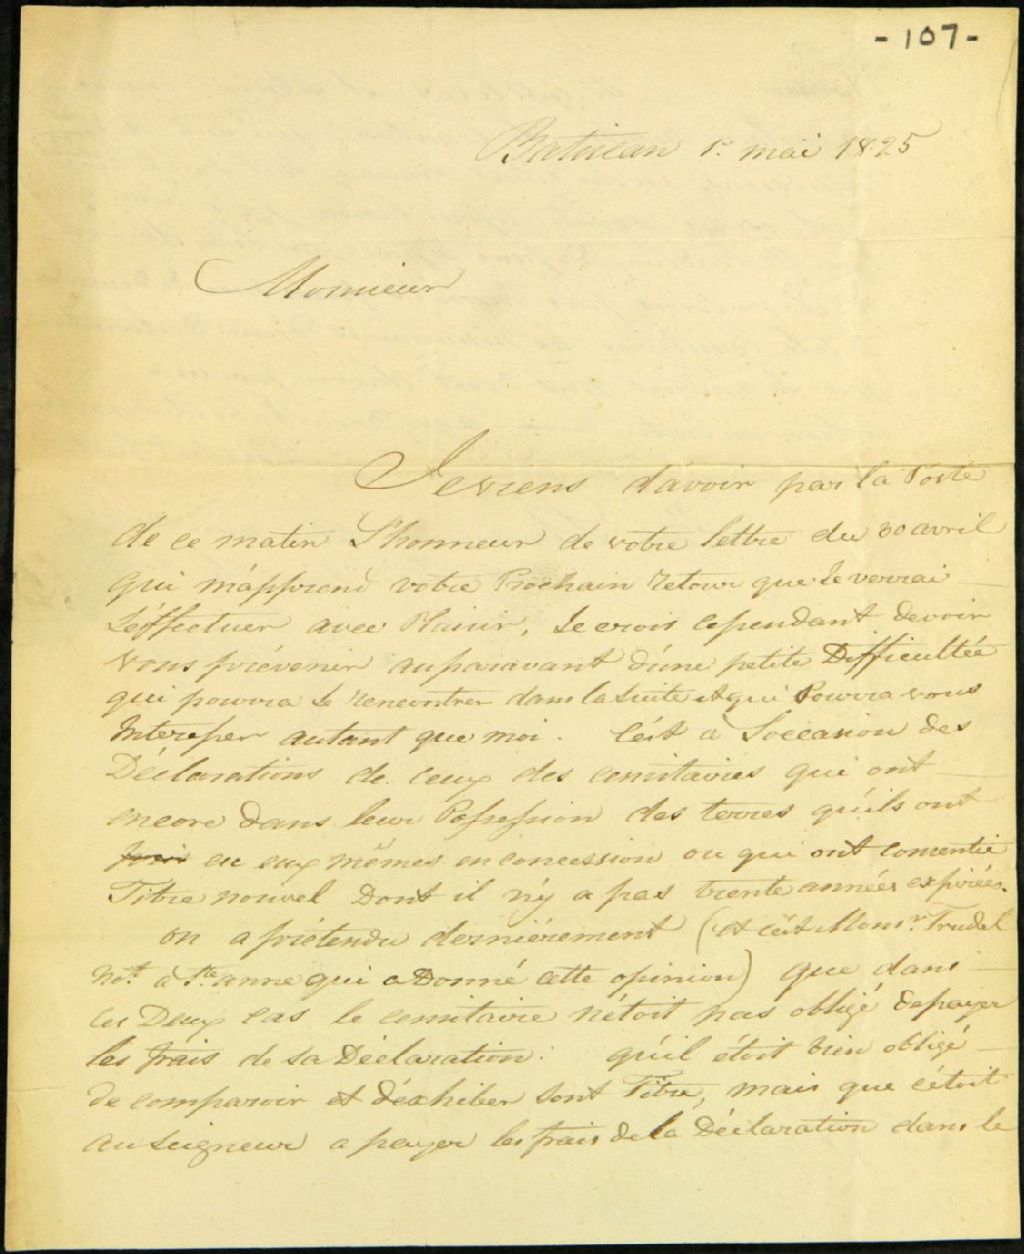 - 107 -
Batiscan 1r. mai 1825
Monsieur
Je viens d'avoir par la Poste
de ce matin L'honneur de votre lettre du 30 avril
qui m'apprend votre Prochain retour que Je verrai
S'éffectuer avec Plaisir, Je crois cependant devoir
vous prévenir auparavant d'une petite Difficultée
qui pourra se rencontrer dans la suite et qui Pourra vous
Interesser autant que moi. C'est a L'occasion des
Déclarations de ceux des censitaires qui ont
encore dans leur Possession des terres qu'ils ont
eu eux mêmes en concession ou qui ont consentie
Titre nouvel Dont il n'y a pas trente années expirées.
on a prétendu dernièrement (et c'ést Monsr. Trudel
Not. à Ste. anne qui a Donné cette opinion) que dans
ces Deux cas le censitaire n'étoit pas obligé de payer
les frais de sa Déclaration: qu'il étoit bien obligé
de comparoir et d'éxhiber sont Titre, mais que c'étoit
au seigneur a payer les frais de la Déclaration dans le